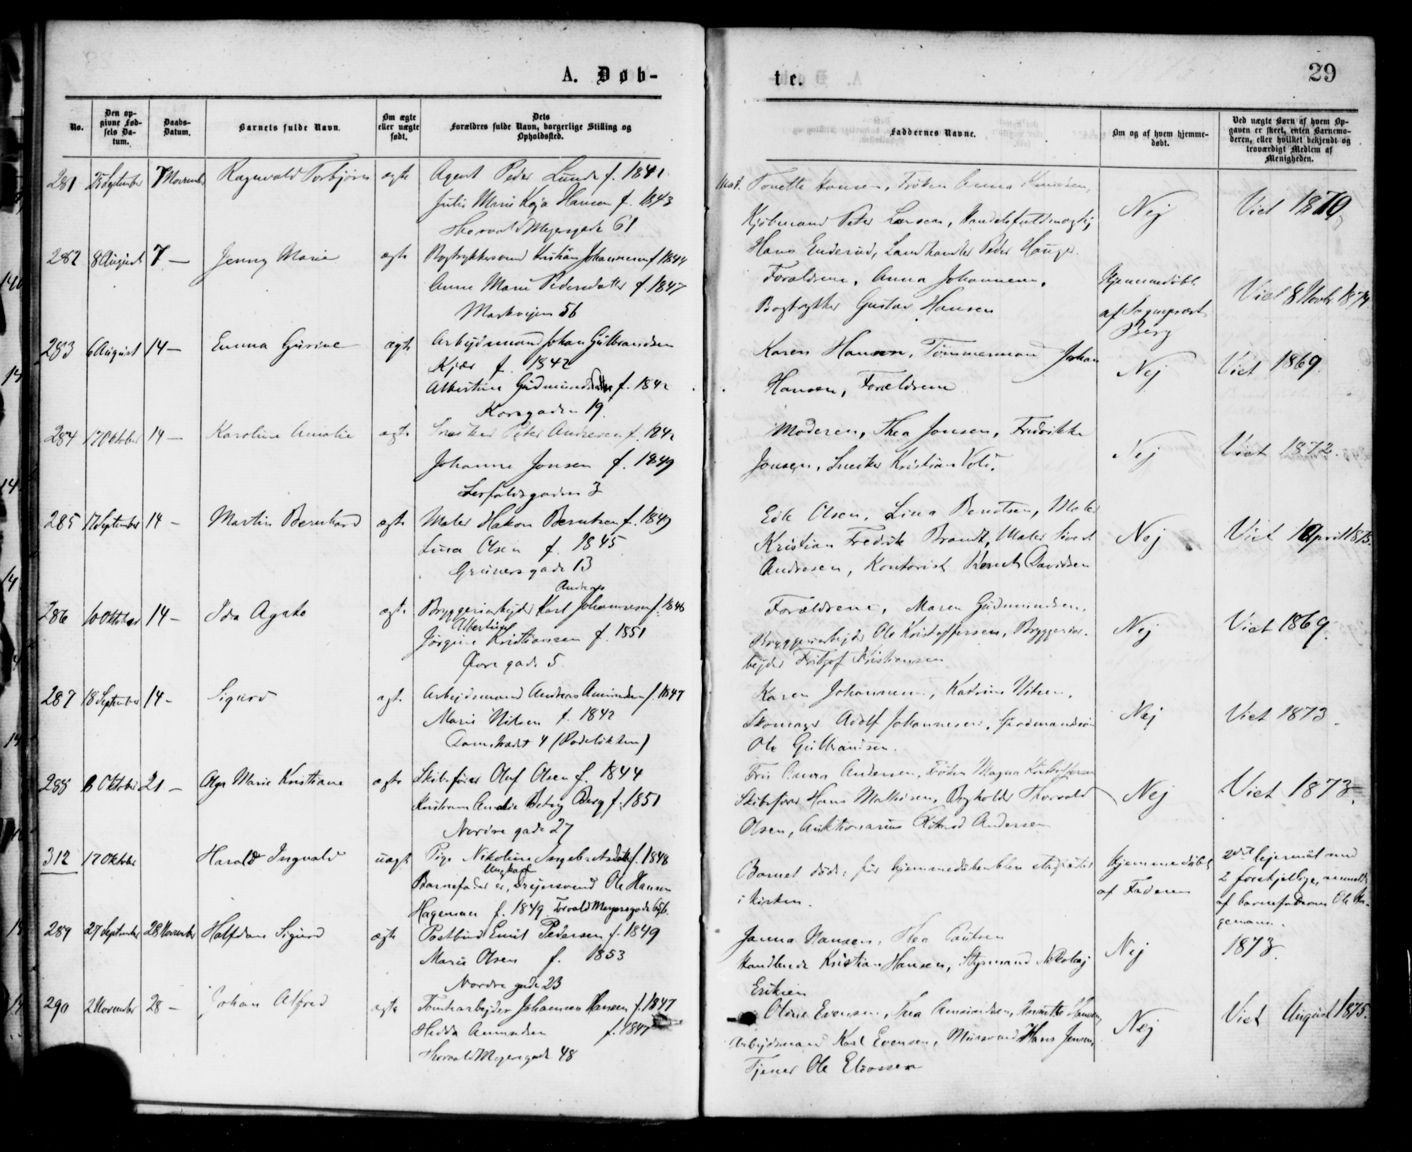 A. Døb-
te.
29
No.
Den op-
givne Fød-
sels Da-
tum.
Daabs-
Datum.
Barnets fulde Navn.
Om ægte
eller uægte
født.
Dets
Forældres fulde Navn, borgerlige Stilling og
Opholdssted.
Faddernes Navne.
Om og af hvem hjemme-
døbt.
Ved uægte Børn af hvem Op-
gaven er skeet, enten Barnemo-
deren, eller hvilket bekjendt og
troværdigt Medlem af
Menigheden.
281 25 September 7 November Ragnvald Torbjørn ægte Agent Peder Lunde f. 1841
Julie Marie Kaja Hansen f. 1843
Thorvald Meyersgade 61
Tonette Hansen, Frøken Anna
Kjøbmand Peter Larsen, Handelsfuldmægtig
Hans Enderud, Landhandler Peder Hauger
Nej
Viet 1870
282 8 August 7 — Jenny Marie ægte Bogtrykkersvend Kristian Johannesen f. 1844
Anne Marie Pedersdatter f. 1847
Markveien 56
Forældrene, Anna Johannesen,
Bogtrykker Gustav Hansen
Hjemmedøbt
af Sogneprest
Berg
Viet 8 Novbr 1874
283 6 August 14 — Emma Gurine ægte Arbeidsmand Johan Gulbrandsen
Kjær f. 1842
Albertine Gudmundsdatter f. 1842
Korsgaden 19.
Karen Hansen, Tømmermand Johan
Hansen, Forældrene
Nej
Viet 1869.
284 17 Oktober 14 — Karoline Amalie ægte Snedker Peter Andresen f. 1842
Johanne Jonsen f. 1849
Lerfaldsgaden 3
Moderen, Thea Jonsen, Fredrikke
Jonsen, Snedker Kristian Vold.
Nej
Viet 1872.
285 17 September 14 — Martin Bernhard ægte Maler Hakon Berntsen f. 1849
Lina Olsen f. 1845
Grünersgade 13
Edle Olsen, Lina Berntsen, Maler
Kristian Fredrik Brandt, Maler Sivert
Andresen, Kontorist Bernt Davidsen
Nej
Viet April 1875.
286 10 Oktober 14 — Ida Agate ægte Bryggeriarbeider Karl Johannesen f. 1848
Anders
Albertine
Jørgine Kristiansen f. 1851
Øvre gade 5
Forældrene, Maren Gudmundsen,
Bryggeriarbeider Ole Kristoffersen, Bryggeriar-
beider Fritjof Kristiansen
Nej
Viet 1869.
287 18 September 14 — Sigurd ægte Arbeidsmand Andreas Amundsen f. 1847
Marie Nilsen f. 1842
4 (Rodeløkken)
Karen Johannesen, Katrine Nilsen,
Skomager Adolf Johannesen,
Ole Gulbrandsen.
Nej
Viet 1873.
288 3 Oktober 21 — Olga Marie Kristiane ægte Skibsfører Oluf Olsen f. 1844
Kristiane Amalie Betzy Berg f. 1851
Nordre gade 27
Fru Anna Andersen, Frøken Magna Kristoffersen
Skibsfører Hans Mathisen, Bogholder Thorvald
Olsen, Auktionarius Edvard Andersen
Nej
Viet 1873.
312 17 Oktober Harald Ingvald uægte Pige Nikoline Ingebretsdatter f. 1848
Ungkarl
Barnefader er, Dreiersvend Ole Hansen
Hagensen f. 1849 Torvald Meyersgade 65b.
Barnet døde før hjemmedaaben blev stadfæstet
i kirken.
Hjemmedøbt
af Faderen
2det leiermaal med
2 forskjellige, anmeldt
af barnefaderen Ole Ha-
gensen.
289 27 September 28 November Halfdan Sigurd ægte Postbud Emil Pedersen f. 1849
Marie Olsen f. 1853
Nordre gade 23
Janna Hansen, Thea
Handlende Kristian Hansen, Styrmand Nikolai
Eriksen
Nej
1873.
290 2 November 28 — Johan Alfred ægte Tomtearbeider Johannes Hansen f. 1847
Hedda Amundsen f. 1847
Thorvald Meyersgade 48
Oline Evensen, Thea Amundsen, Annette Hansen,
Arbeidsmand Karl Evensen, Murersvend Hans Jensen,
Tjener Ole Eliassen
Nej
Viet August 1875.